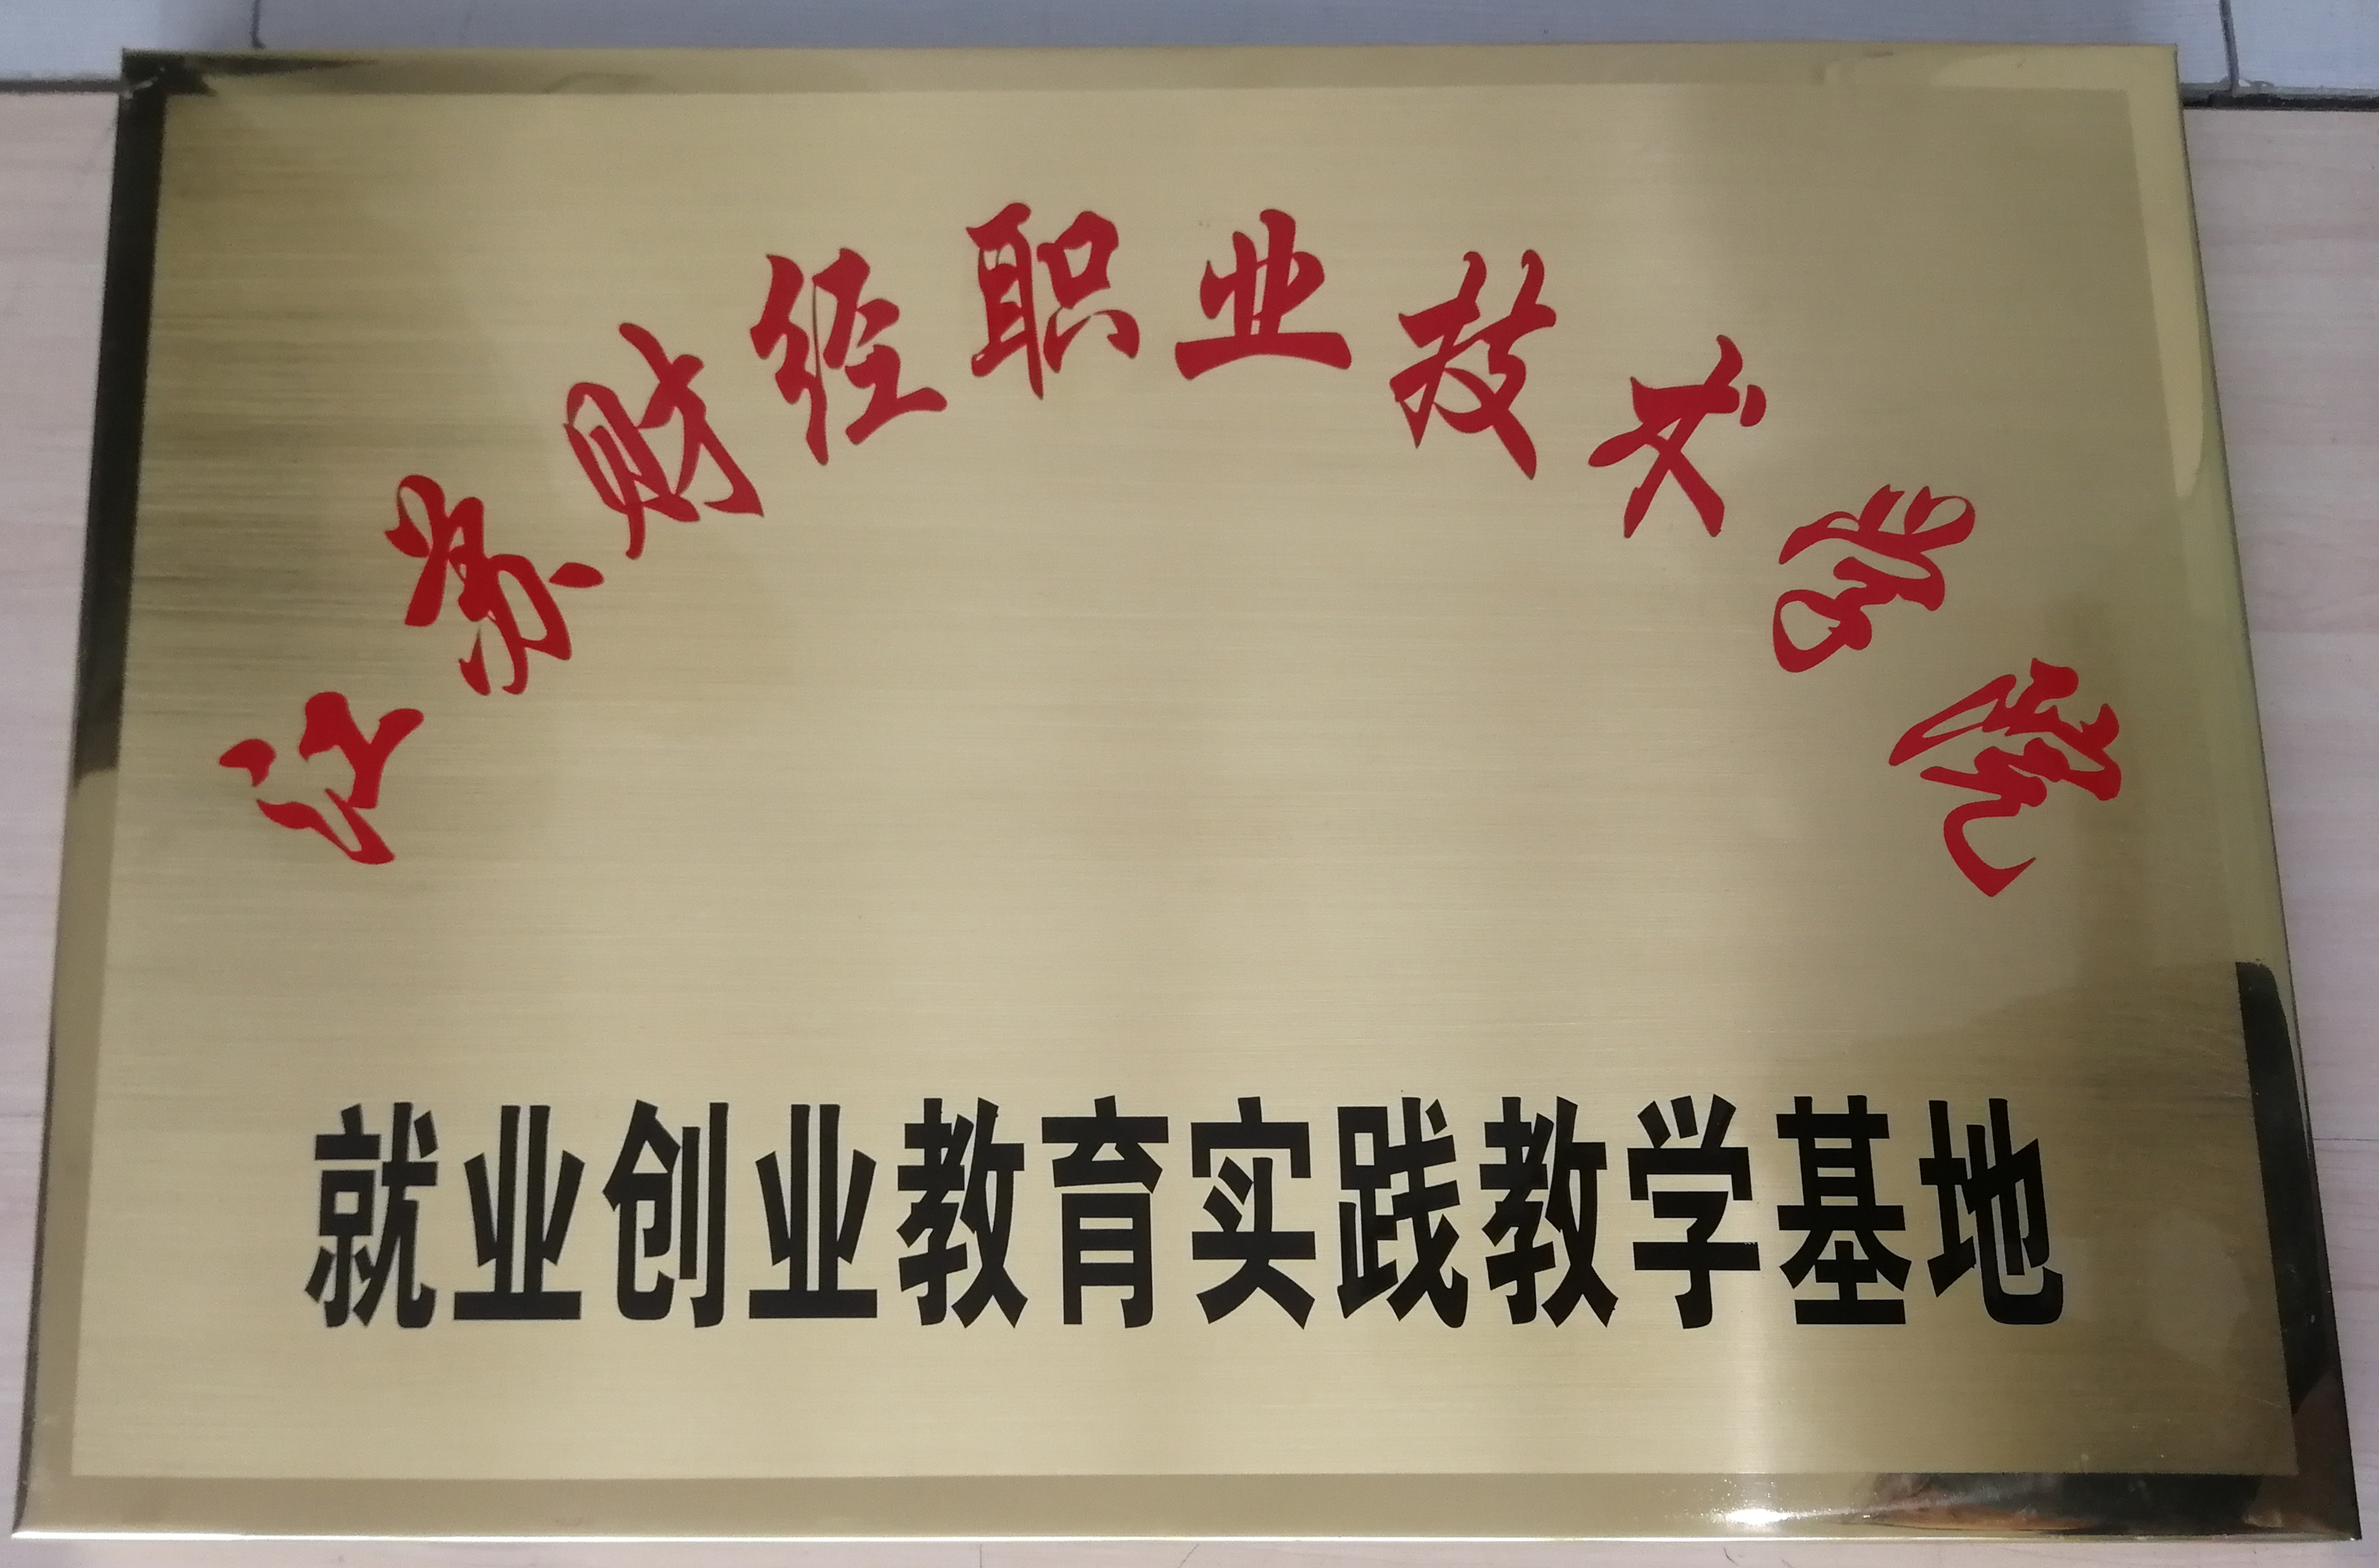 江苏财经职业技术学院
就业创业教育实践教学基地